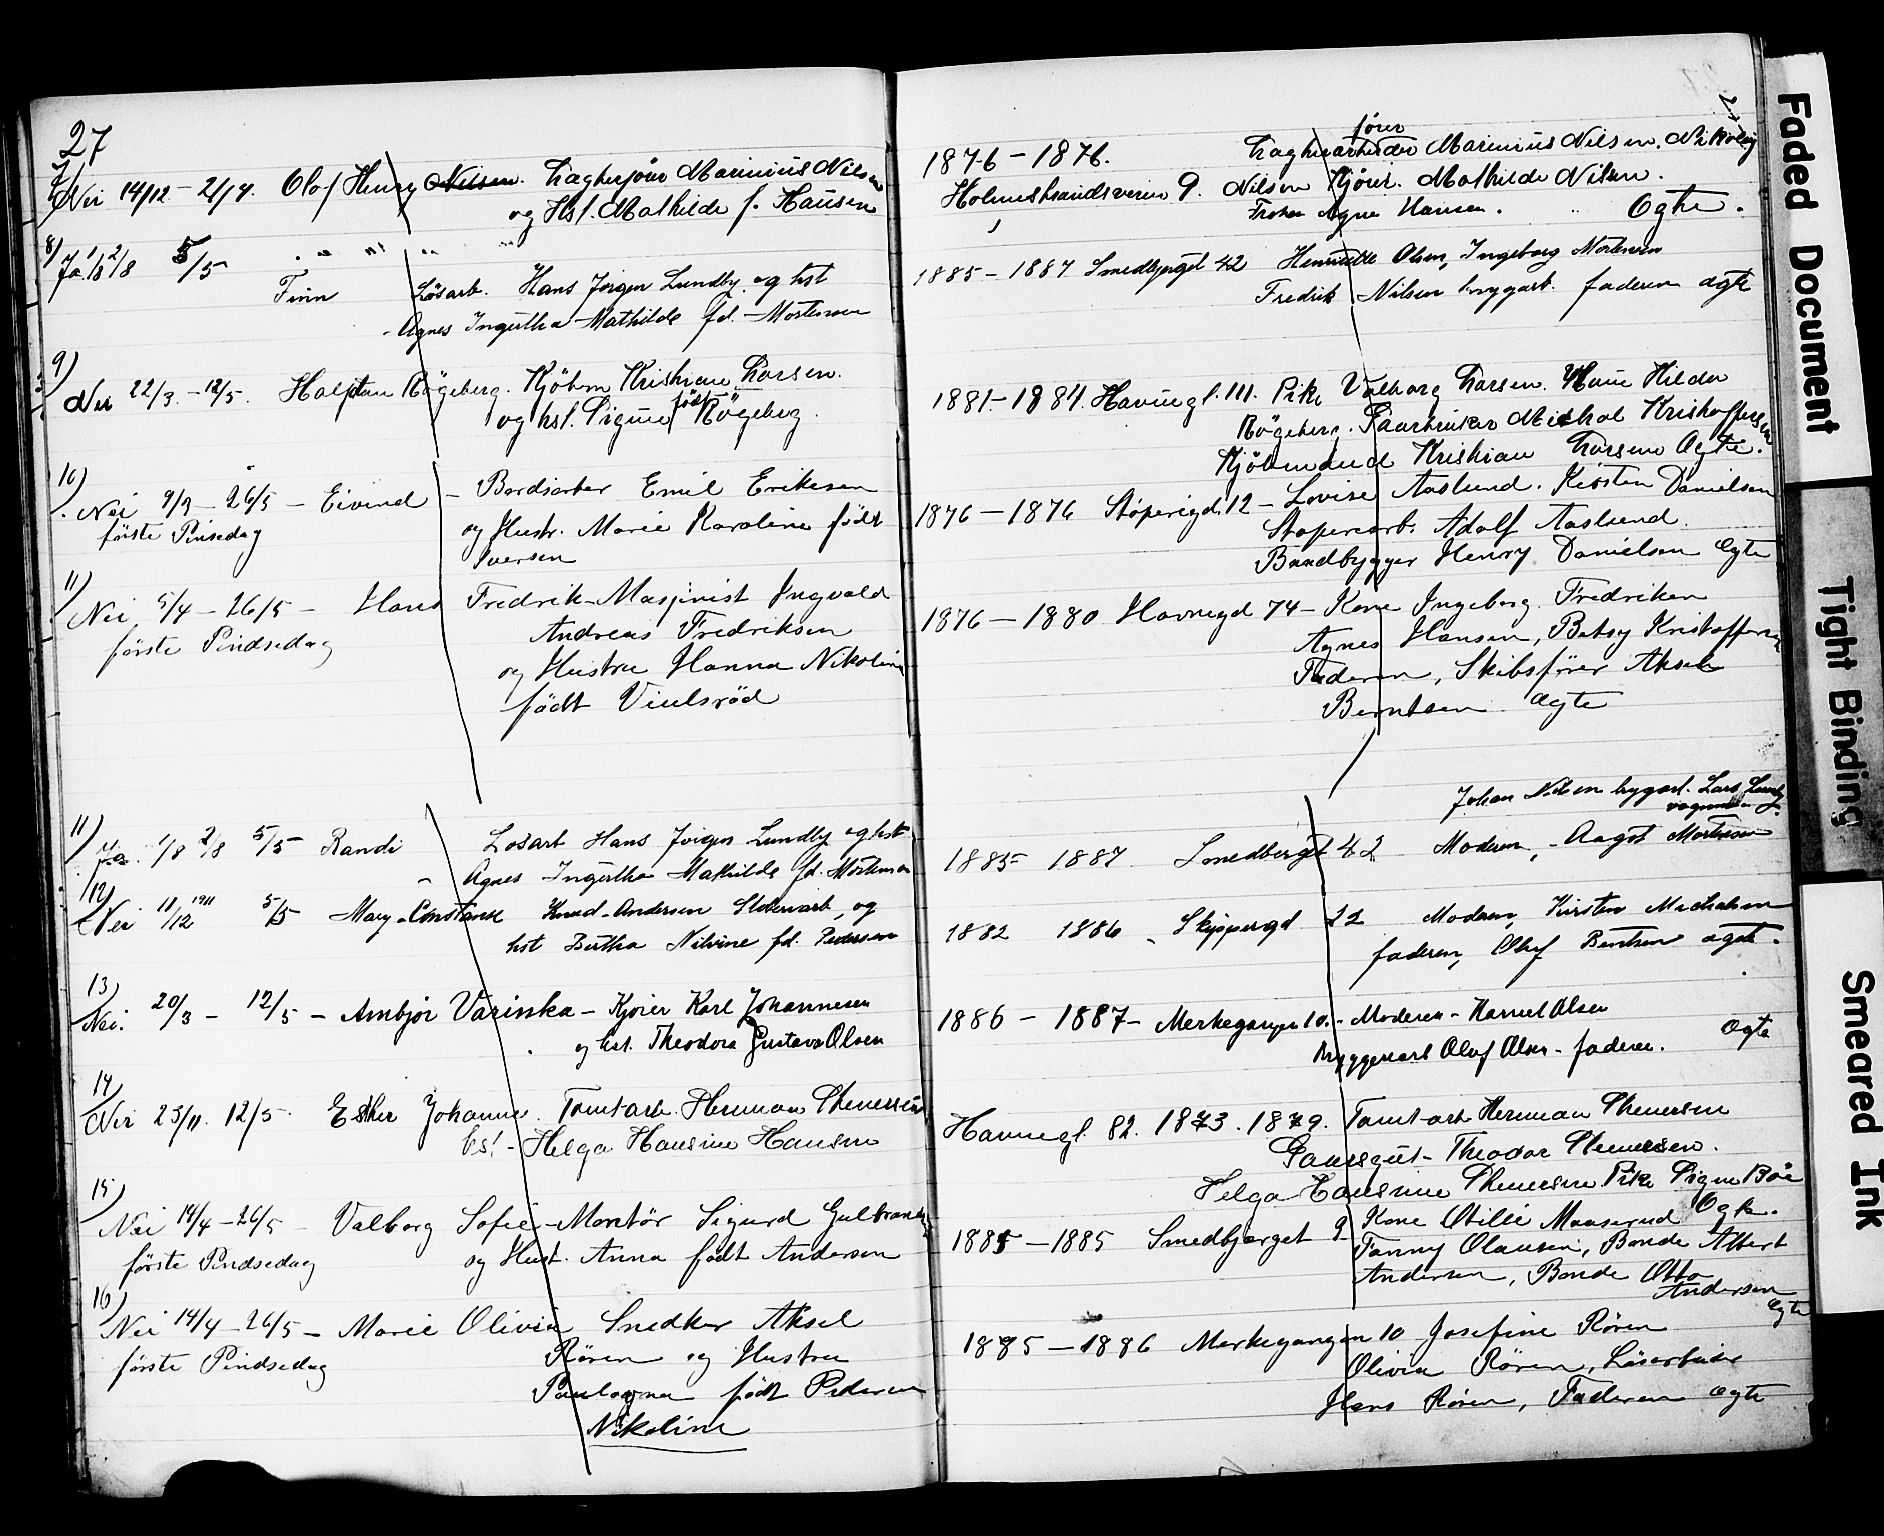 27
7/
Nei 14/12 - 2/4. Olof Henry Nilsen. Lagherförer Marinius Nilsen
og Hst. Mathilde f. Hansen
8/
Ja 1/8 2/8 5/5
Finn Løsarb. Hans Jørgen Lundby og hst
Agnes Ingertha Mathilde fd. Mortensen
9)
Nei 22/3 - 12/5. Halftan Rögeberg. Kjöbm Kristian Larsen.
og hst. Signe født Rögeberg.
10)
Nei 9/3 - 26/5 - Eivind - Bordsarber Emil Eriksen
første Pinsedag og Hustr. Marie Karoline født
Iversen
11)
Nei 5/4 - 26/5 - Hans Fredrik - Masjinist Ingvald
første Pindsedag Andreas Fredriksen
og Hustru Hanna Nikoline
født Vinlsrød
11)
Ja. 1/8 2/8 5/5 Randi Løsarb Hans Jørgen Lundby og hst
Agnes Ingertha Mathilde fd. Mortensen
12)
Nei 11/12 1911 5/5 Mary-Constanse Knud Andersen Støberiarb, og
hst Bertha Nilvine fd. Pedersen
13)
Nei. 20/3 - 12/5 - Ambjør Varinska - Kjører Karl Johannesen
og hst. Theodora Gustava Olsen
14)
Nei 23/11. 12/5. Esther Johanne. Tomtarb. Herman Thenersen
hst - Helga Hansine Hansen
15)
Nei 14/4 - 26/5 - Valborg Sofie - Montør Sigurd Gulbrandsen
første Pindsedag og Hust. Anna født Andersen
16)
Nei 14/4 - 26/5 - Marie Olivia Snedker Aksel
første Pindsedag Røren og Hustru
Paulagna født Pedersen
Nikoline
fører
1876 - 1876. Lagherarbeider Marinius Nilsen.
Holmestrandsveien 9. Nilsen Kjörer. Mathilde Nilsen.
Frøken Agne Hansen. Ogte.
1885 - 1887 Smedbjerget 42 Henriette Olsen, Ingeborg Mortensen
Fredrik Nilsen bryggarb. faderen ægte
1881 - 1884. Havnegt. 111. Pike Valborg Larsen. Hilda
Rögeberg. Gaarbruker Mikal Kristoffersen
Kjöbmand Kristian Larsen Ogte.
1876 - 1876 Støperigd. 12 - Lovise Aaslund. Kirsten Danielsen
Støperiarb. Adolf Aaslund.
Baadbygger Henry Danielsen Ogte
1876 - 1880 Havnegd 74 - Kone Ingeborg Fredriksen
Agnes Hansen, Betsy Kristoffersen
Faderen, Skibsfører Aksel
Berntsen. Ogte
Johan Nilsen brygarb. Lars Lundby
1885 1887 Smedberget 42 Moderen, - Aagot Mortensen
1882 1886 Skippergd 22 Moderen, Kirsten Michalsen
faderen, Oluf Berntsen ægte.
1886 - 1887 - Merkegangen 10. - Moderen - Harriet Olsen
bryggeriarb Oluf Olsen - faderen. Ogte
Havnegt. 82. 1873. 1879. Tomtarb Herman Thenersen
Gaarsgut - Theodor Thenersen.
Helga Hansine Thenersen Pike Signe Böe
Ogte.
1885 - 1885 Smedbjerget 9 Kone Otilie Maaserud
Fanny Olausen, Bonde Albert
Andersen, Bonde Otto
Andersen
Ogte
1885 - 1886 Merkegangen 10 Josefine Røren
Olivia Røren, Løsarbeider
Hans Røren, Faderen Ogte
Faded Document
Tight Binding
Smeared Ink